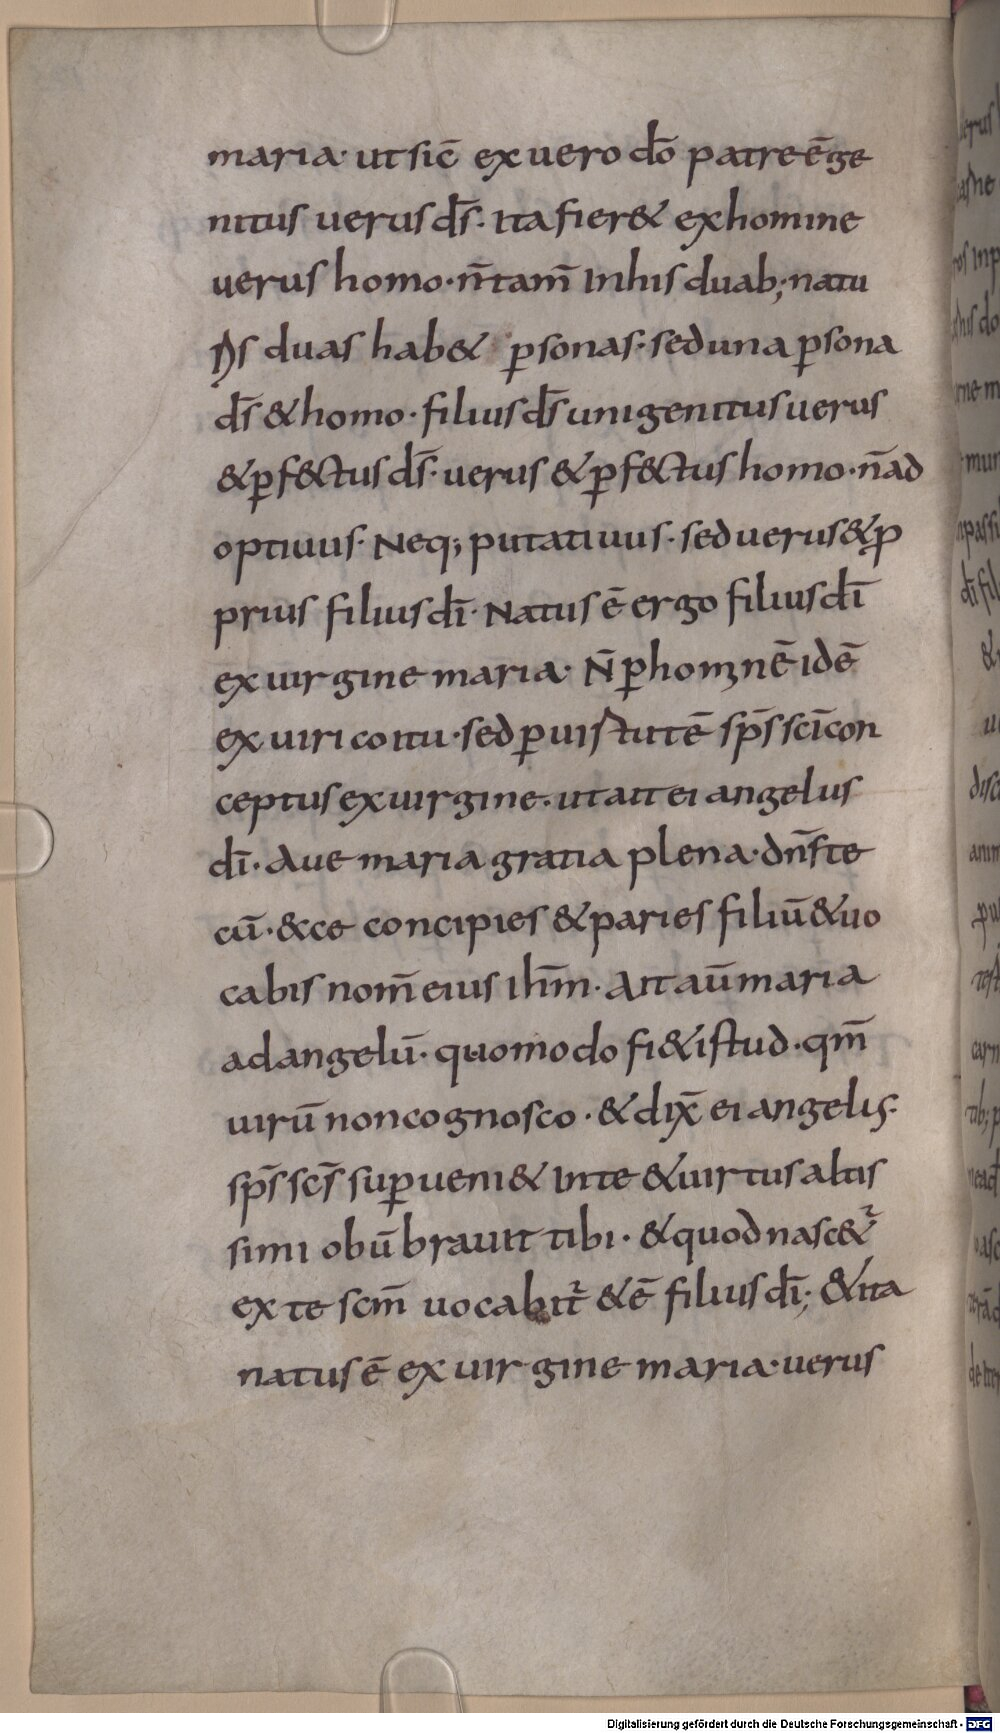 maria· ut sic̄ ex uero dō patre ē ge
nitus uerus ds̄· ita fier& ex homine
uerus homo· n̄ tam̄ in his duab; natu
ris duas hab& ꝑsonas· sed una ꝑsona
ds̄ & homo· filius ds̄ unigenitus uerus
& ꝑf&ctus ds̄· uerus & ꝑf&ctus homo· n̄ ad
optiuus· Neq; putatiuus· sed uerus & ꝓ
prius filius dī· Natus ē ergo filius dī
ex uirgine maria· N̄ ꝑ hominē idē
ex uiri coitu· sed ꝑ uirtutē sps̄ scī con
ceptus ex uirgine· ut ait ei angelus
dī· Aue maria gratia plena· dn̄s te
cū· &cce concipies & paries filiū & uo
cabis nom̄ eius ihm̄· Ait aū maria
ad angelū· quomodo fi& istud· qm̄
uirū non cognosco· & dix̄ ei angelus·
sps̄ scs̄ suꝑueni& in te & uirtus altis
simi obūbrauit tibi· & quod nasc&ur
ex te scm̄ uocabit᷑ & ē filius dī; & ita
natus ē ex uirgine maria· uerus
Digitalisierung gefördert durch die Deutsche Forschungsgemeinschaft - DFG